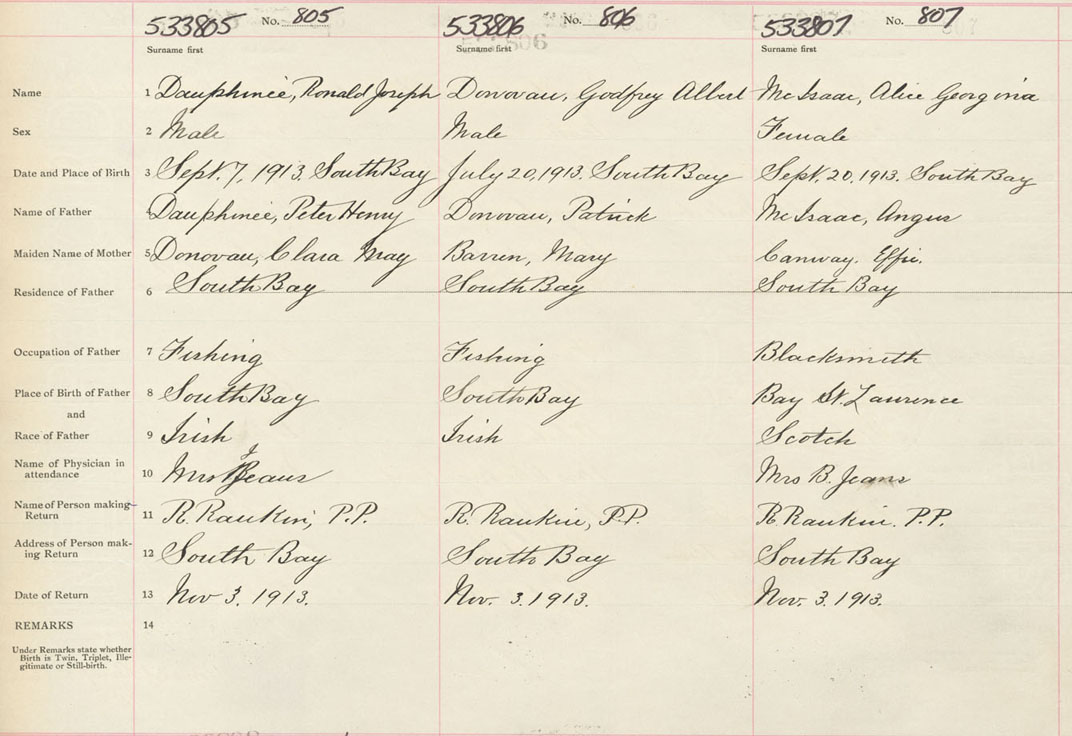 533805 No. 805 533806 No. 806 533807 No. 807
Surname first Surname first Surname first
Name 1 Dauphinee, Ronald Joseph Donovan, Godfrey Albert McIsaac, Alice Georgina
Sex 2 Male Male Female
Date and Place of Birth 3 Sept. 7, 1913. South Bay July 20, 1913. South Bay Sept. 20, 1913. South Bay
Name of Father 4 Dauphinee, Peter Henry Donovan, Patrick McIsaac, Angus
Maiden Name of Mother 5 Donovan, Clara May Barren, Mary Canway. Effie.
Residence of Father 6 South Bay South Bay South Bay
Occupation of Father 7 Fishing Fishing Blacksmith
Place of Birth of Father 8 South Bay South Bay Bay St. Lawrence
and
Race of Father 9 Irish Irish Scotch
Name of Physician in
attendance 10 Mrs Jeans Mrs B. Jeans
Name of Person making
Return 11 R. Rankin, P.P. R. Rankin, P.P. R. Rankin. P.P.
Address of Person mak-
ing Return 12 South Bay South Bay South Bay
Date of Return 13 Nov 3. 1913. Nov. 3. 1913. Nov. 3. 1913.
REMARKS 14
Under Remarks state whether
Birth is Twin, Triplet, Ille-
gitimate or Still-birth.